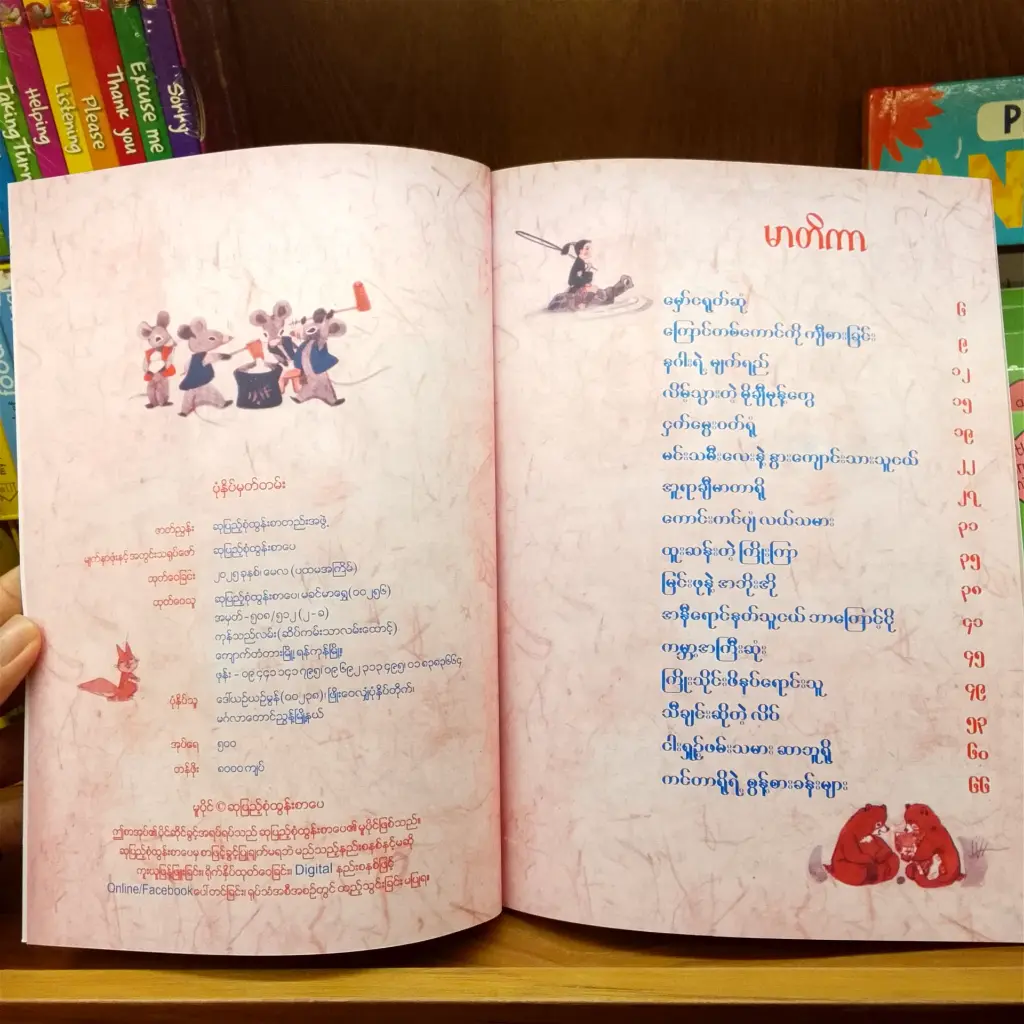 Taking Turn
Helping
Listening
Please
Thank you
Excuse me
Sorry
ပုံနှိပ်မှတ်တမ်း
ဇာတ်ညွှန်း ဆုပြည့်စုံထွန်းစာတည်းအဖွဲ့
မျက်နှာဖုံးနှင့်အတွင်းသရုပ်ဖော် ဆုပြည့်စုံထွန်းစာပေ
ထုတ်ဝေခြင်း ၂၀၂၅ ခုနှစ်၊ မေလ (ပထမအကြိမ်)
ထုတ်ဝေသူ ဆုပြည့်စုံထွန်းစာပေ၊ မခင်မာရွှေ (၀၀၂၅၆)
အမှတ် - ၅၀၈/၅၁၂ (၂-ခ)
ကုန်သည်လမ်း (ဆိပ်ကမ်းသာလမ်းထောင့်)
ကျောက်တံတားမြို့၊ ရန်ကုန်မြို့။
ဖုန်း - ၀၉ ၄၄၁ ၁၄၁ ၇၉၅၊ ၀၉ ၆၉၂ ၃၁၃ ၄၉၅၊ ၀၁ ၈၃၈၃၆၆၄
ပုံနှိပ်သူ ဒေါ်ယဉ်ယဉ်မွန် (၀၀၂၃၈)၊ ဖြိုးဝေလျှံပုံနှိပ်တိုက်၊
မင်္ဂလာတောင်ညွန့်မြို့နယ်
အုပ်ရေ ၅၀၀
တန်ဖိုး ၈၀၀၀ ကျပ်
မူပိုင် © ဆုပြည့်စုံထွန်းစာပေ
ဤစာအုပ်၏ပိုင်ဆိုင်ခွင့်အရပ်ရပ်သည် ဆုပြည့်စုံထွန်းစာပေ၏ မူပိုင်ဖြစ်သည်။
ဆုပြည့်စုံထွန်းစာပေမှ စာဖြင့်ခွင့်ပြုချက်မရဘဲ မည်သည့်နည်းစနစ်နှင့်မဆို
ကူးယူဖြန့်ဖြူးခြင်း၊ ရိုက်နှိပ်ထုတ်ဝေခြင်း၊ Digital နည်းစနစ်ဖြင့်
Online/Facebookပေါ်တင်ခြင်း၊ ရုပ်သံအစီအစဉ်တွင် ထည့်သွင်းခြင်း မပြုရ။
မာတိကာ
မှော်ငရုတ်ဆုံ ၆
ကြောင်တစ်ကောင်ကို ကျီစားခြင်း ၉
နဂါးရဲ့ မျက်ရည် ၁၂
လိမ့်သွားတဲ့ မိုချီမုန့်တွေ ၁၅
ငှက်မွေးဝတ်ရုံ ၁၉
မင်းသမီးလေးနဲ့ နွားကျောင်းသားသူငယ် ၂၂
အူရာချီမာတာရို ၂၇
ကောင်းကင်ပျံ လယ်သမား ၃၁
ထူးဆန်းတဲ့ ကြိုးကြာ ၃၅
မြင်းဖုနဲ့ အဘိုးအို ၃၈
အနီရောင်နတ်သူငယ် ဘာကြောင့်ငို ၄၁
ကမ္ဘာ့အကြီးဆုံး ၄၅
ကြိုးသိုင်းဖိနပ်ရောင်းသူ ၄၉
သီချင်းဆိုတဲ့ လိပ် ၅၃
ငါးရှဉ့်ဖမ်းသမား ဆာဘူရို ၆၀
ကင်တာရိုရဲ့ စွန့်စားခန်းများ ၆၆